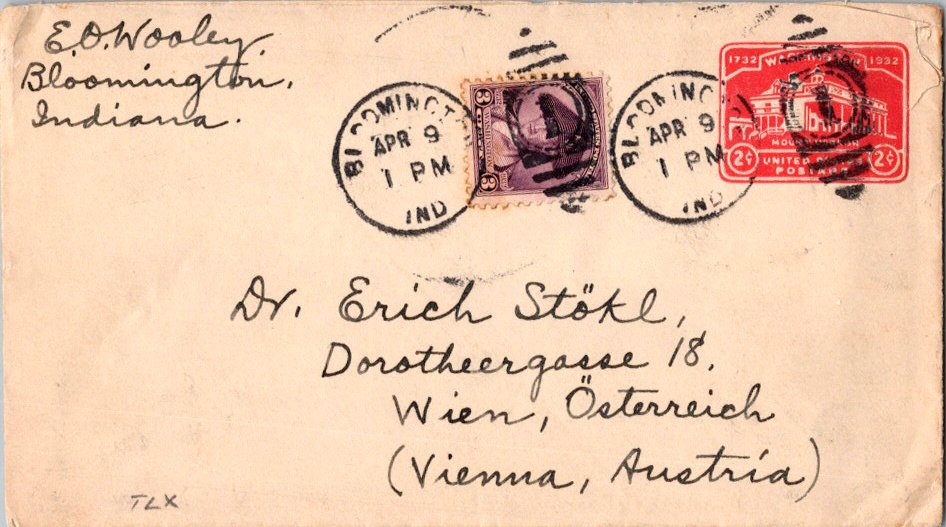 E.O. Wooley.
Bloomington,
Indiana.
BLOOMINGT
APR 9
1 PM
IND
3 3
BLOOMING
APR 9
1 PM
IND
1732 1932
MOUNT
2¢ UNITED 2¢
POSTAGE
Dr. Erich Stökl,
Dorotheergasse 18.
Wien, Österreich
(Vienna, Austria)
TLX